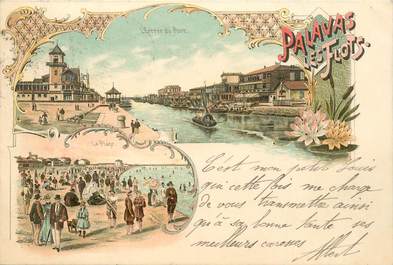 L'Entrée du Port.
PALAVAS
LES FLOTS.
La Plage
C'est mon petit Louis
qui cette fois me charge
de vous transmettre ainsi
qu'à sa bonne tante ses
meilleurs caresses
Albert